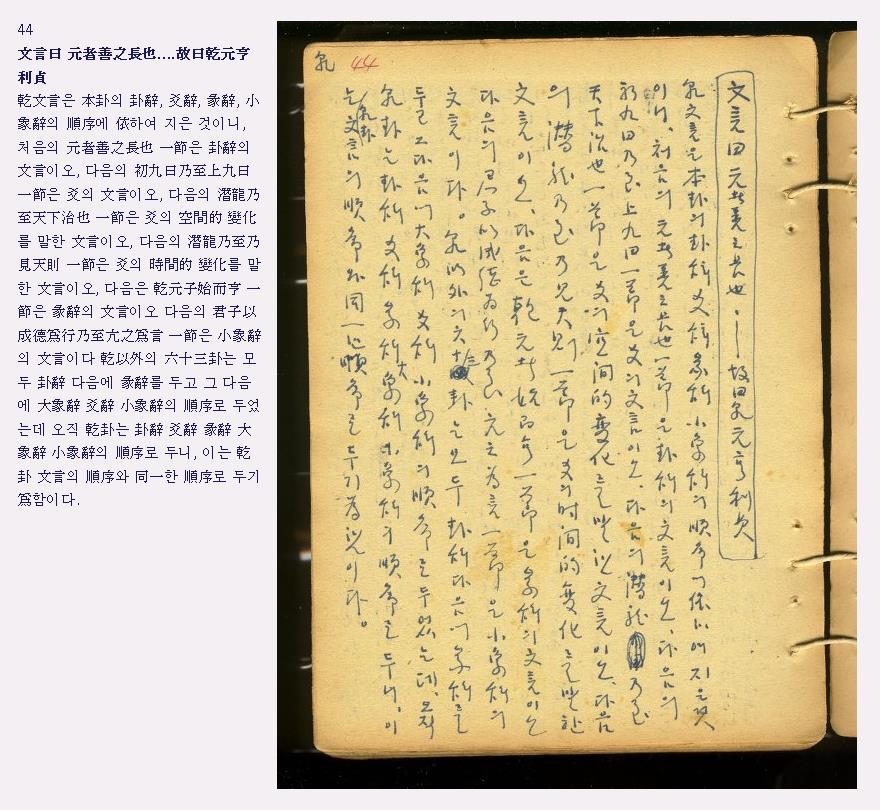 44
文言曰 元者善之長也....故曰乾元亨
利貞
乾文言은 本卦의 卦辭, 爻辭, 彖辭, 小
象辭의 順序에 依하여 지은 것이니,
처음의 元者善之長也 一節은 卦辭의
文言이오, 다음의 初九曰乃至上九曰
一節은 爻의 文言이오, 다음의 潛龍乃
至天下治也 一節은 爻의 空間的 變化
를 말한 文言이오, 다음의 潛龍乃至乃
見天則 一節은 爻의 時間的 變化를 말
한 文言이오, 다음은 乾元子始而亨 一
節은 彖辭의 文言이오 다음의 君子以
成德爲行乃至亢之爲言 一節은 小象辭
의 文言이다 乾以外의 六十三卦는 모
두 卦辭 다음에 彖辭를 두고 그 다음
에 大象辭 爻辭 小象辭의 順序로 두었
는데 오직 乾卦는 卦辭 爻辭 彖辭 大
象辭 小象辭의 順序로 두니, 이는 乾
卦 文言의 順序와 同一한 順序로 두기
爲함이다.
乾 44
文言曰 元者善之長也 · — 故曰乾元亨利貞
乾文言은 本卦의 卦辭 爻辭 彖辭 小象辭의 順序에 依하여 지은 것
이니, 처음의 元者善之長也 一節은 卦辭의 文言이오, 다음의
初九曰乃至上九曰 一節은 爻의 文言이오, 다음의 潛龍 乃至
天下治也 一節은 爻의 空间的 變化를 말한 文言이오, 다음
의 潛龍乃至乃見天則 一節은 爻의 时间的 變化를 말한
文言이오, 다음은 乾元者始而亨 一節은 彖辭의 文言이오
다음의 君子以成德為行乃至亢之為言 一節은 小象辭의
文言이다。乾以外의 六十三卦는 모두 卦辭 다음에 彖辭를
두고 그 다음에 大象辭 爻辭 小象辭의 順序로 두었는데, 오직
乾卦는 卦辭 爻辭 彖辭 大象辭 小象辭의 順序로 두니, 이
는 乾卦 文言의 順序와 同一한 順序로 두기 為함이다。